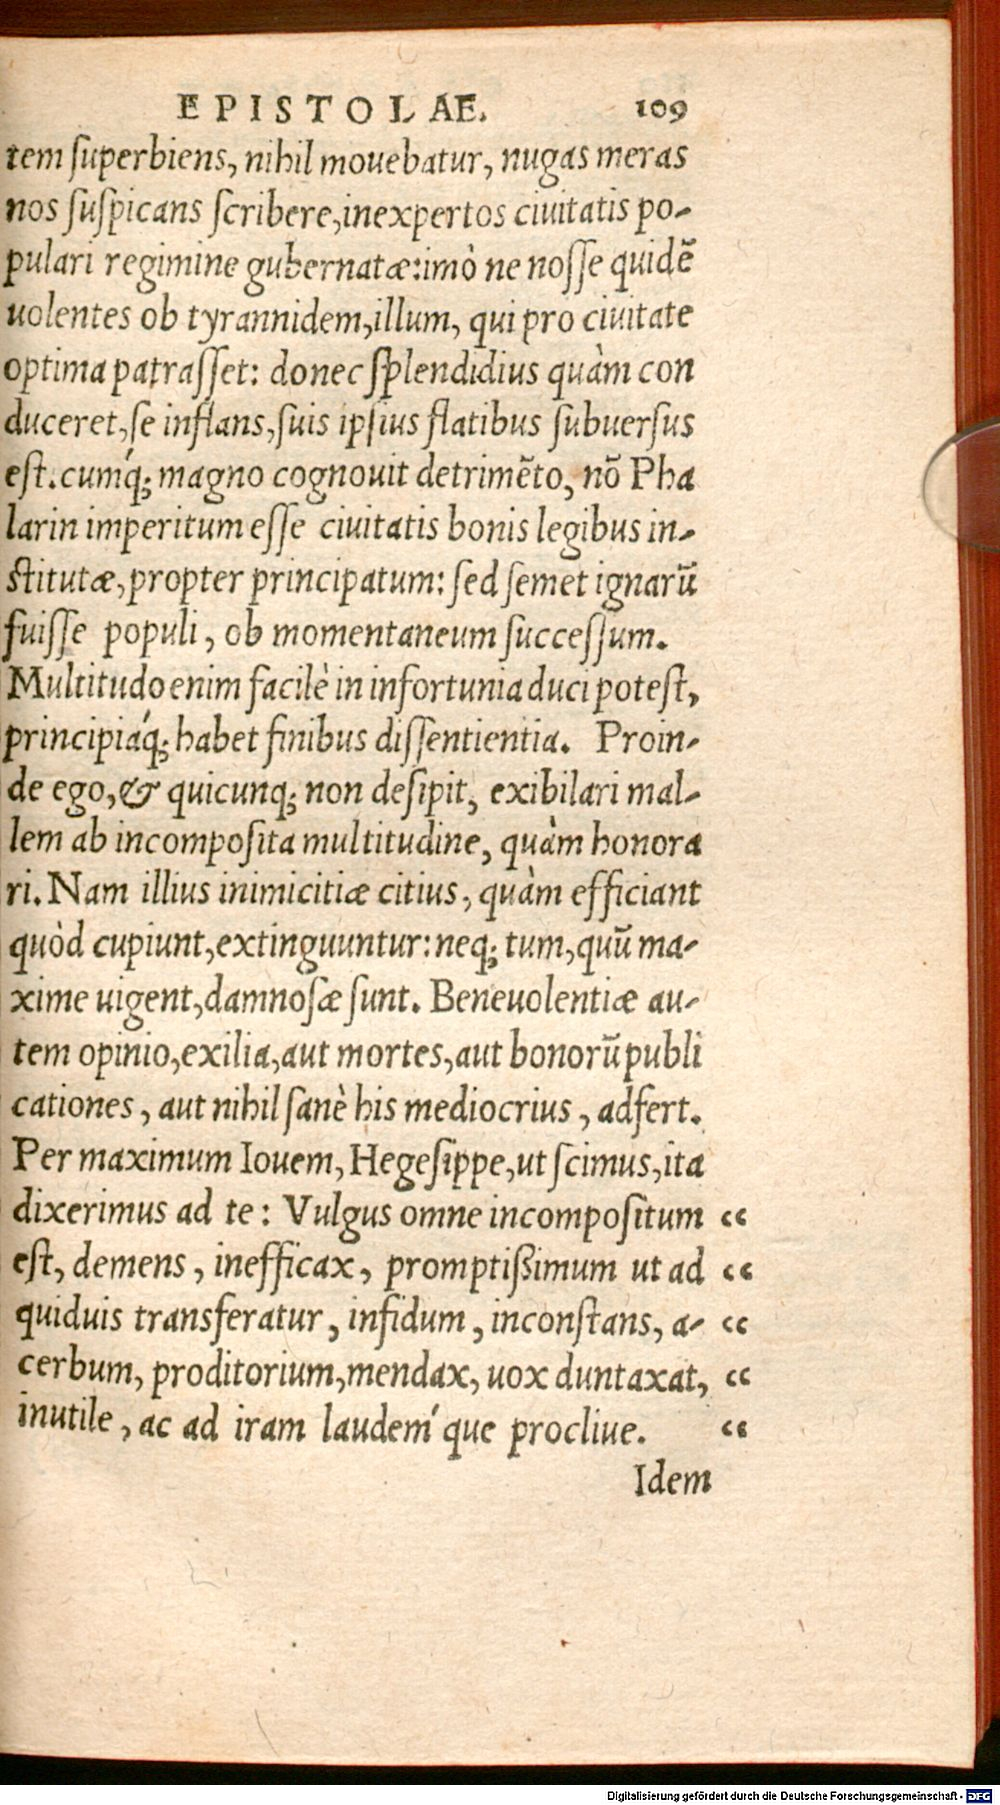 EPISTOLAE. 109
tem ſuperbiens, nihil mouebatur, nugas meras
nos ſuſpicans ſcribere, inexpertos ciuitatis po-
pulari regimine gubernatæ: imò ne noſſe quidẽ
uolentes ob tyrannidem, illum, qui pro ciuitate
optima patraſſet: donec ſplendidius quàm con
duceret, ſe inflans, ſuis ipſius flatibus ſubuerſus
eſt. cumq́; magno cognouit detrimẽto, nõ Pha
larin imperitum eſſe ciuitatis bonis legibus in-
ſtitutæ, propter principatum: ſed ſemet ignarũ
fuiſſe populi, ob momentaneum ſucceſſum.
Multitudo enim facilè in infortunia duci poteſt,
principiaq́; habet finibus diſſentientia. Proin-
de ego, & quicunq; non deſipit, exibilari mal-
lem ab incompoſita multitudine, quàm honora
ri. Nam illius inimicitiæ citius, quàm efficiant
quòd cupiunt, extinguuntur: neq; tum, quũ ma-
xime uigent, damnoſæ ſunt. Beneuolentiæ au-
tem opinio, exilia, aut mortes, aut bonorũ publi
cationes, aut nihil ſanè his mediocrius, adfert.
Per maximum Iouem, Hegeſippe, ut ſcimus, ita
dixerimus ad te: Vulgus omne incompoſitum “
eſt, demens, inefficax, promptißimum ut ad “
quiduis transferatur, infidum, inconſtans, a- “
cerbum, proditorium, mendax, uox duntaxat, “
inutile, ac ad iram laudeḿque procliue. “
Idem
Digitalisierung gefördert durch die Deutsche Forschungsgemeinschaft - DFG